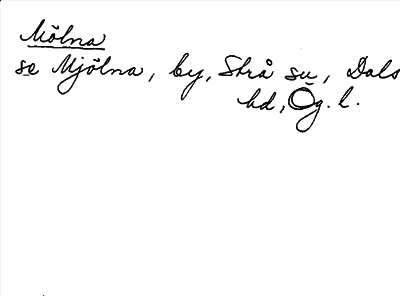 Mölna
se Mjölna, by, Strå sn, Dals
hd, Ög. l.